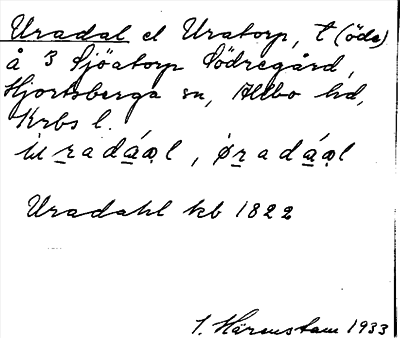 Uradal el Uratorp, t (öde)
å 3 Sjöatorp Södregård,
Hjortsberga sn, Allbo hd,
Krbs l.
ùṟadá̱æ̣l, ǿṟadá̱æ̣l
Uradahl kb 1822
I. Härenstam 1933